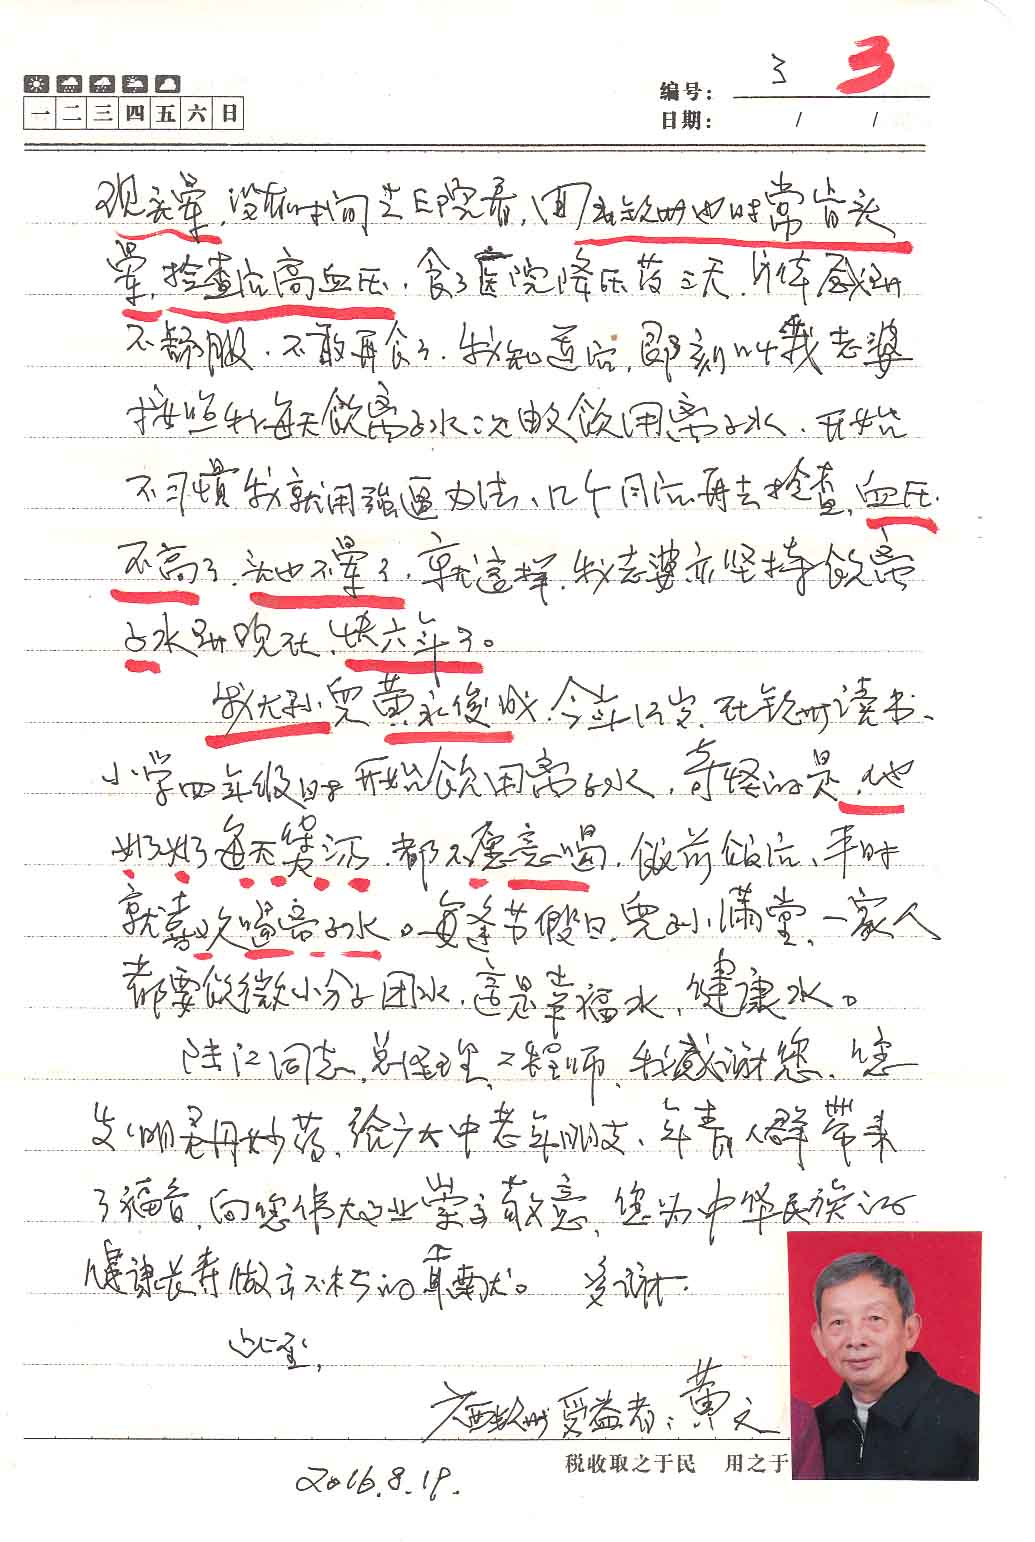 3 3
编号:
一 二 三 四 五 六 日
日期: / /
现头晕,没有时间去医院看,回到钦州也时常有头
晕,检查后高血压,食了医院降压药三天,身体感到
不舒服,不敢再食了,我知道后,即刻叫我老婆
按照我每天饮离子水次数饮用离子水,开始
不习惯我就用强逼办法,几个月后再去检查,血压
不高了,头也不晕了,就这样,我老婆亦坚持饮离
子水到现在,快六年了。
我大孙儿黄永俊成,今年12岁,在钦州读书、
小学四年级时开始饮用离子水,奇怪的是,他
奶奶每天煲汤,都不愿意喝,饭前饭后,平时
就喜欢喝离子水。每逢节假日,儿孙满堂,一家人
都要饮微小分子团水,这是幸福水,健康水。
陆江同志,总经理,工程师,我感谢您,您
发明灵丹妙药,给广大中老年朋友、年青人群带来
了福音,向您伟大的业崇高敬意,您为中华民族的
健康长寿做出不朽的贡献。 多谢.
此致,
广西钦州受益者:黄文
税收取之于民 用之于
2016.8.19.